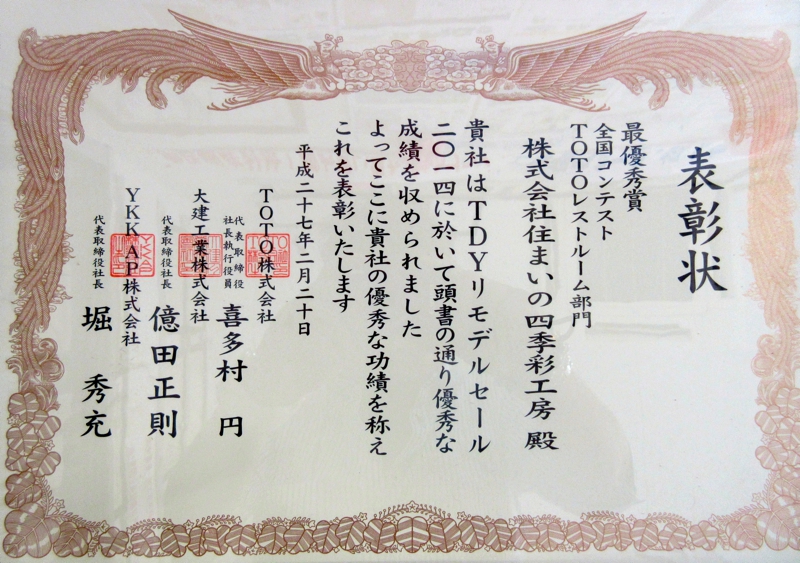 表彰状
最優秀賞
全国コンテスト
TOTOレストルーム部門
株式会社住まいの四季彩工房 殿
貴社はTDYリモデルセール
二〇一四に於いて頭書の通り優秀な
成績を収められました
よってここに貴社の優秀な功績を称え
これを表彰いたします
平成二十七年二月二十日
TOTO株式会社
代表取締役
社長執行役員
喜多村 円
大建工業株式会社
代表取締役社長
億田正則
YKK AP株式会社
代表取締役社長
堀 秀充